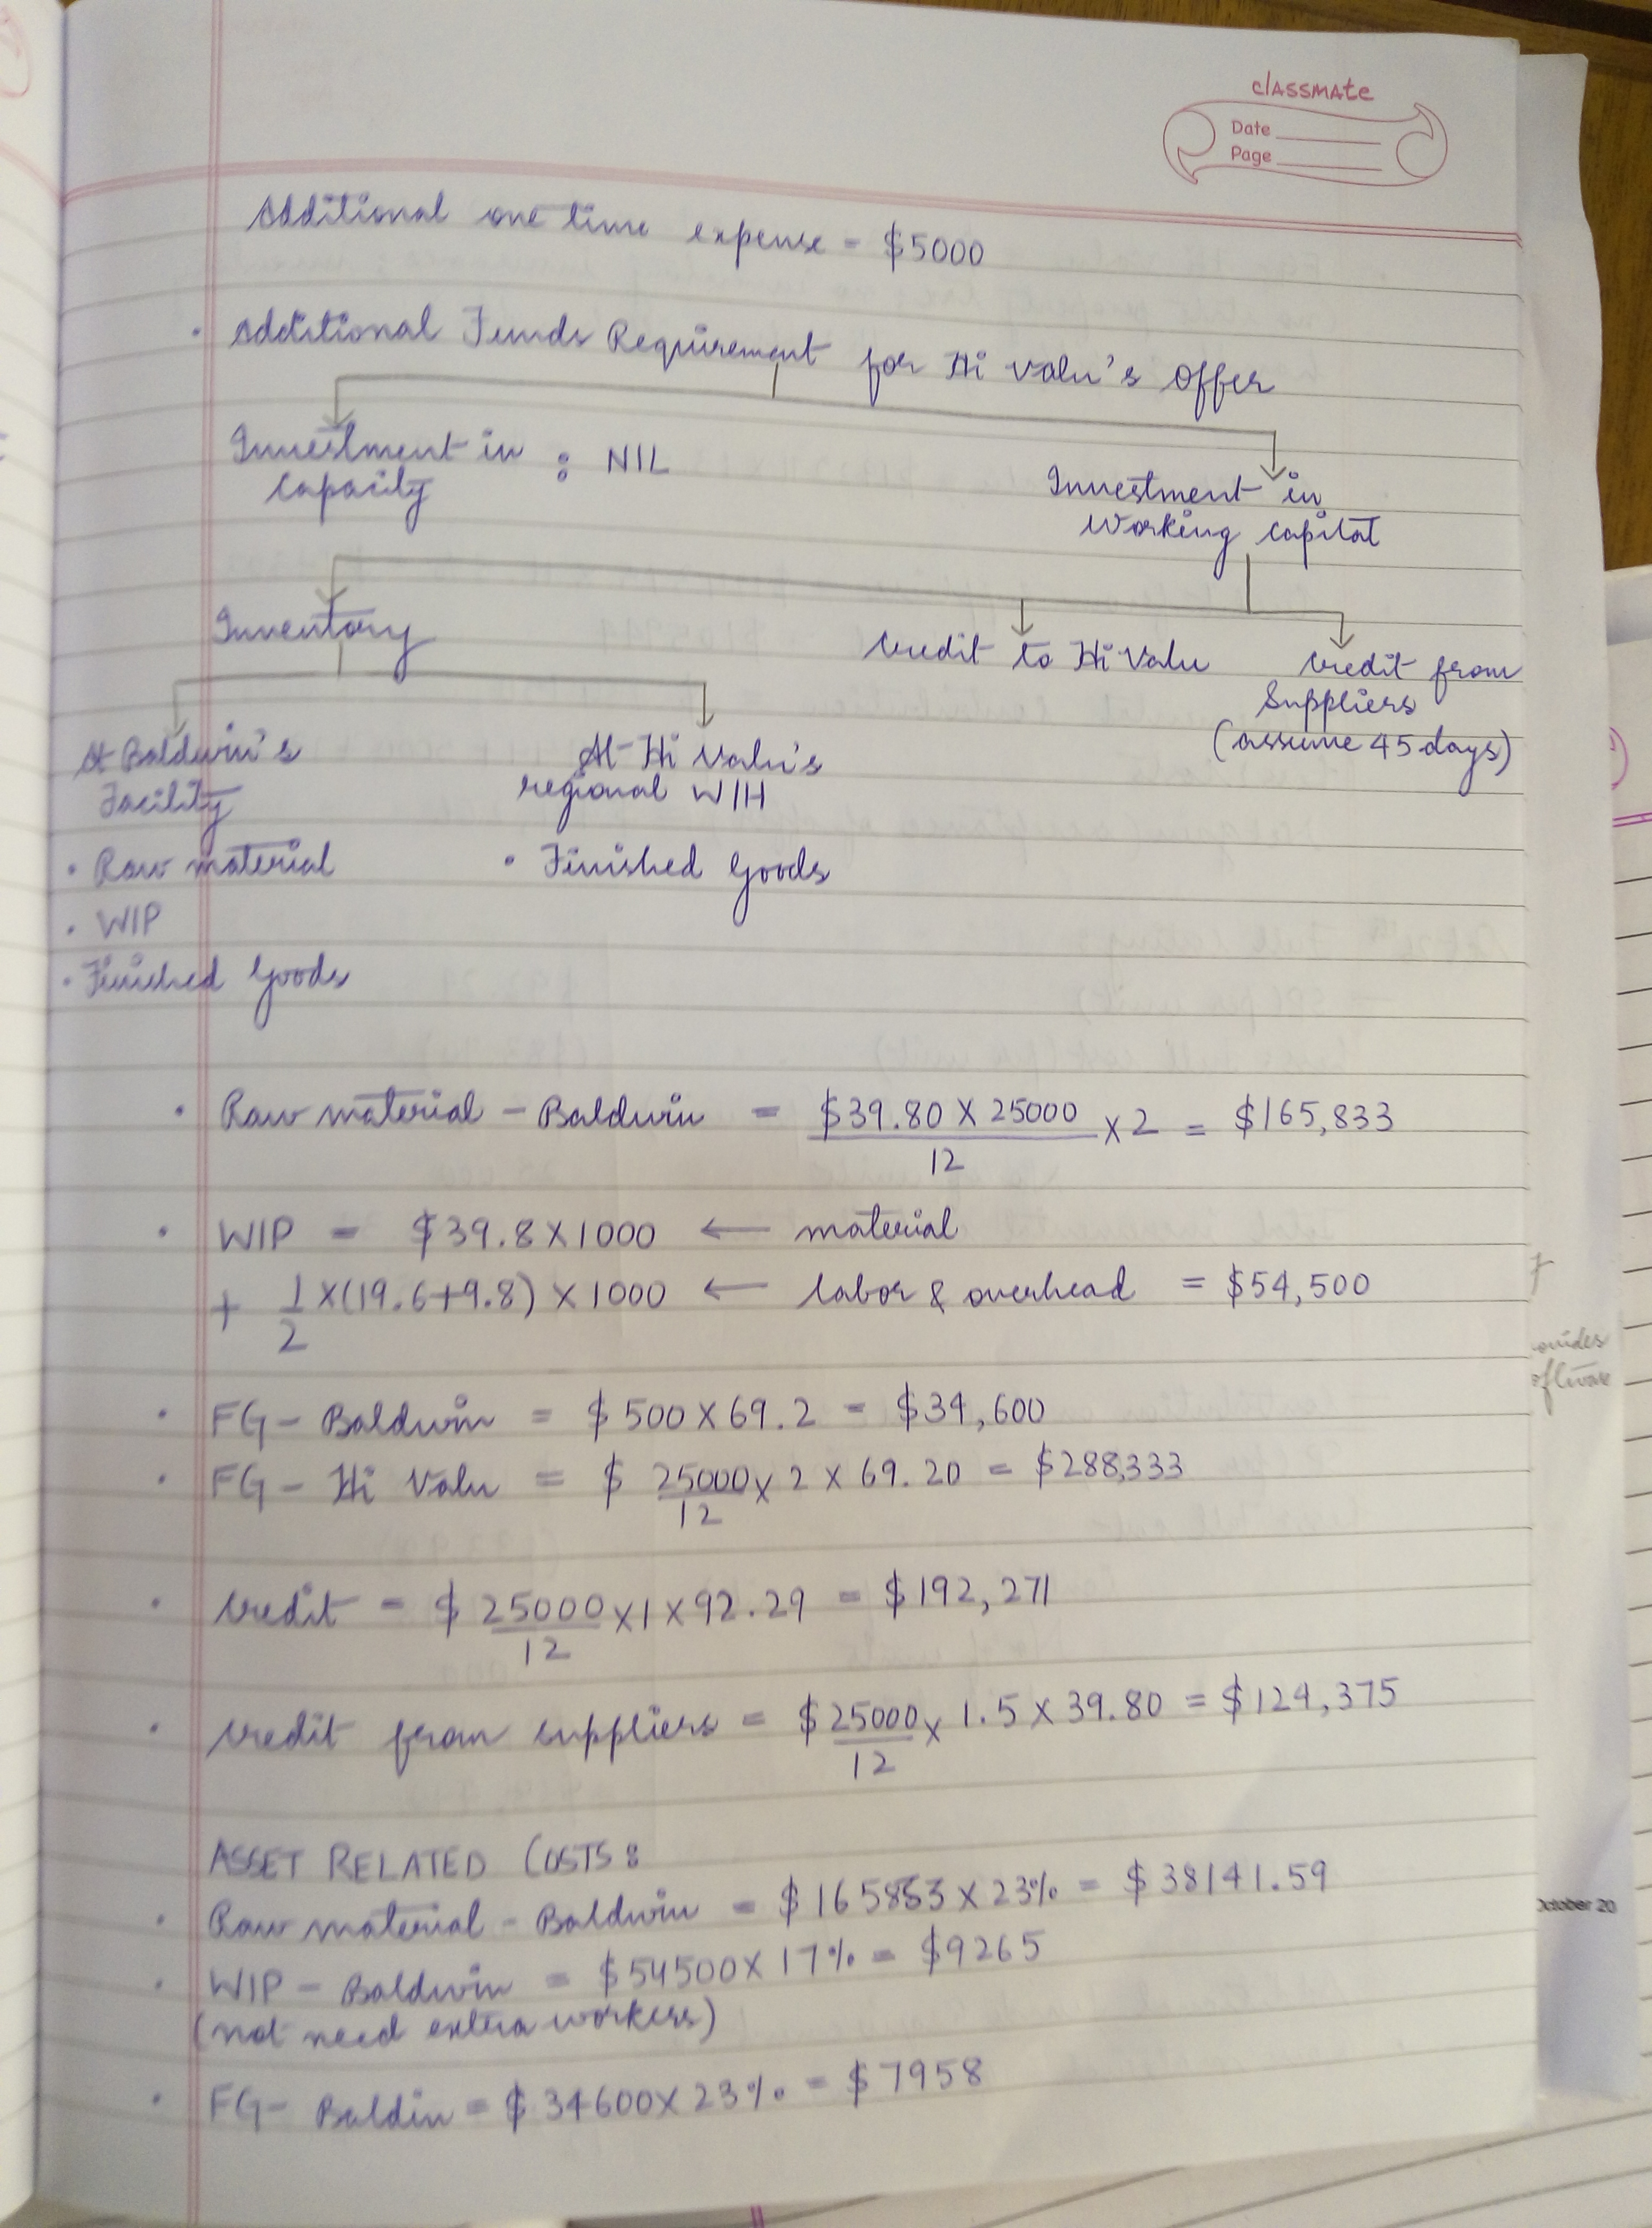 classmate
Date
Page
Additional one time expense = $5000
• Additional Funds Requirement for Hi Valu's Offer
Investment in : NIL
Capacity
Investment in
Working Capital
Inventory
Credit to Hi Valu
Credit from
Suppliers
(assume 45 days)
At Baldwin's
Facility
At Hi Valu's
regional W/H
• Raw material
• Finished Goods
• WIP
• Finished Goods
• Raw material - Baldwin = $39.80 X 25000 / 12 X 2 = $165,833
• WIP = $39.8 X 1000 ← material
+ 1/2 X (19.6+9.8) X 1000 ← labor & overhead = $54,500
• FG - Baldwin = $500 X 69.2 = $34,600
• FG - Hi Valu = $ 25000/12 X 2 X 69.20 = $288,333
• Credit = $ 25000/12 X 1 X 92.29 = $192,271
• Credit from suppliers = $ 25000/12 X 1.5 X 39.80 = $124,375
ASSET RELATED COSTS :
• Raw material - Baldwin = $165833 X 23% = $38141.59
• WIP - Baldwin = $54500 X 17% = $9265
(not need extra workers)
• FG - Baldin = $34600 X 23% = $7958
October 20